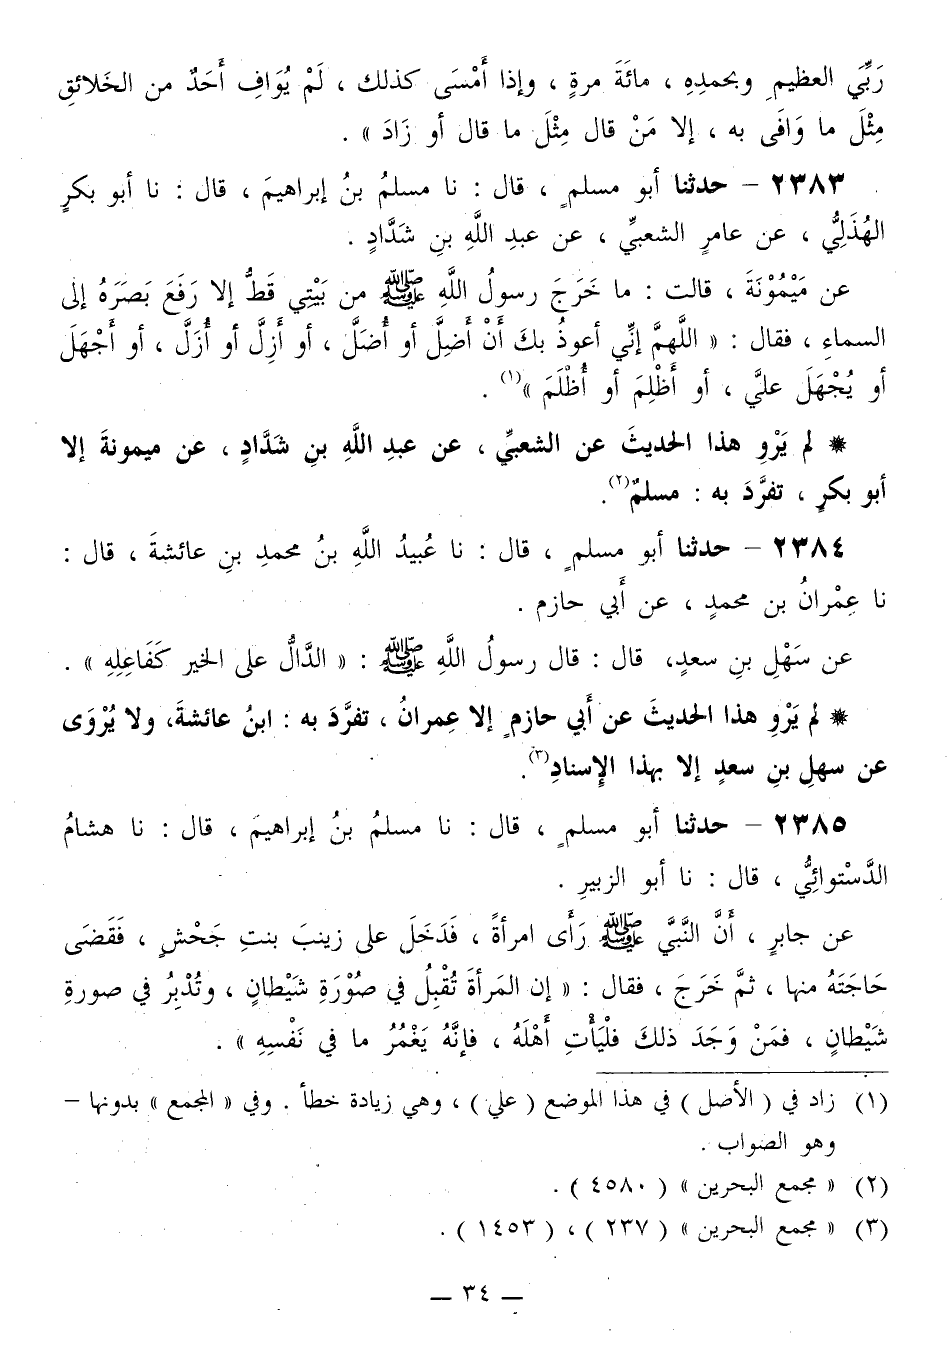 رَبِّيَ العظيمِ وبحمدِهِ ، مائَةَ مرةٍ ، وإذا أَمْسَى كذلك ، لَمْ يُوَافِ أَحَدٌ من الخَلائقِ
مِثْلَ ما وَافَى به ، إلا مَنْ قال مِثْلَ ما قال أو زَادَ » .
٢٣٨٣ – حدثنا أبو مسلمٍ ، قال : نا مسلمُ بنُ إبراهيمَ ، قال : نا أبو بكرٍ
الهُذَلِيُّ ، عن عامرٍ الشعبيِّ ، عن عبدِ اللَّهِ بنِ شَدَّادٍ .
عن مَيْمُوْنَةَ ، قالت : ما خَرَجَ رسولُ اللَّهِ ﷺ من بَيْتِي قَطُّ إلا رَفَعَ بَصَرَهُ إلى
السماءِ ، فقال : « اللَّهمَّ إنِّي أعوذُ بكَ أَنْ أَضِلَّ أو أُضَلَّ ، أو أَزِلَّ أو أُزَلَّ ، أو أَجْهَلَ
أو يُجْهَلَ عليَّ ، أو أَظْلِمَ أو أُظْلَمَ »(١) .
* لم يَرْوِ هذا الحديثَ عن الشعبيِّ ، عن عبدِ اللَّهِ بنِ شَدَّادٍ ، عن ميمونةَ إلا
أبو بكرٍ ، تفرَّدَ به : مسلمٌ(٢).
٢٣٨٤ – حدثنا أبو مسلمٍ ، قال : نا عُبيدُ اللَّهِ بنُ محمدِ بنِ عائشةَ ، قال :
نا عِمْرانُ بن محمدٍ ، عن أَبي حازم .
عن سَهْلِ بنِ سعدٍ، قال : قال رسولُ اللَّهِ ﷺ : « الدَّالُّ على الخيرِ كَفَاعِلِهِ » .
* لم يَرْوِ هذا الحديثَ عن أَبي حازمٍ إلا عِمرانُ ، تفرَّدَ به : ابنُ عائشةَ، ولا يُرْوَى
عن سهلِ بنِ سعدٍ إلا بهذا الإِسنادِ(٣).
٢٣٨٥ – حدثنا أبو مسلمٍ ، قال : نا مسلمُ بنُ إبراهيمَ ، قال : نا هشامُ
الدَّسْتوائِيُّ ، قال : نا أبو الزبيرِ .
عن جابرٍ ، أَنَّ النَّبيَّ ﷺ رَأَى امرأةً ، فَدَخَلَ على زينبَ بنتِ جَحْشٍ ، فَقَضَى
حَاجَتَهُ منها ، ثمَّ خَرَجَ ، فقال : « إن المَرأةَ تُقْبِلُ في صُوْرَةِ شَيْطانٍ ، وتُدْبِرُ في صورةِ
شَيْطانٍ ، فمَنْ وَجَدَ ذلكَ فلْيَأْتِ أَهْلَهُ ، فإنَّهُ يَغْمُرُ ما في نَفْسِهِ » .
(١) زاد في ( الأصل ) في هذا الموضع ( علي ) ، وهي زيادة خطأ . وفي « المجمع » بدونها –
وهو الصواب .
(٢) « مجمع البحرين » ( ٤٥٨٠ ) .
(٣) « مجمع البحرين » ( ٢٣٧ ) ، ( ١٤٥٣ ) .
– ٣٤ –